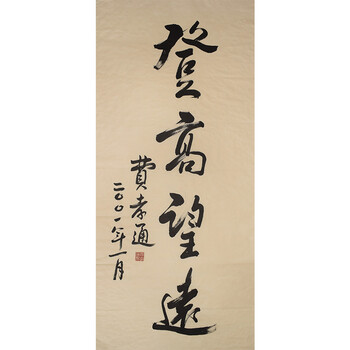 登高望遠
費孝通
二〇〇一年一月